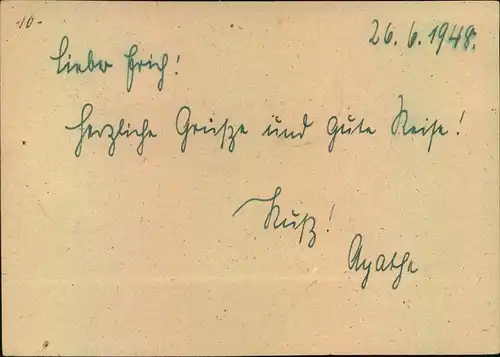 -10-
26. 6. 1948.
Lieber Erich!
Herzliche Grüsze und gute Reise!
Kusz!
Agathe